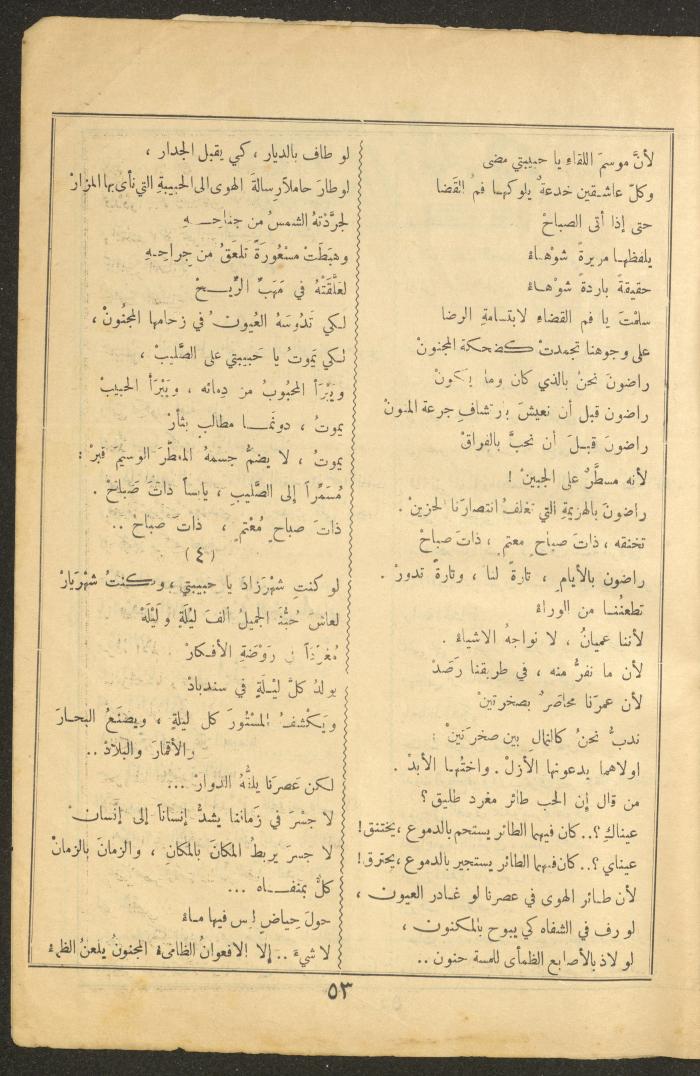 لأنَّ موسمَ اللقاءِ يا حبيبتي مضى
وكلّ عاشقين خدعةٌ يلوكها فمُ القَضا
حتى إذا أتى الصباحْ
يلفظها مريرةً شوْهاءْ
حقيقةً باردةً شوْهاءْ
سلمْتَ يا فم القضاءِ لابتسامةِ الرضا
على وجوهنا تجمدتْ كضحكة المجنونْ
راضون نحنُ بالذي كان وما يكونْ
راضون قبل أن نعيشَ بارتشافِ جرعة المنونْ
راضونَ قبلَ أن نحبَّ بالفراقْ
لأنه مسطَّرٌ على الجبينْ !
راضونَ بالهزيمةِ التي تغلفُ انتصارَنا الحزينْ .
تخنقه ، ذاتَ صباحٍ معتمٍ ، ذاتَ صباحْ
راضون بالأيامِ ، تارةً لنا ، وتارةً تدورْ .
تطعنُنا من الوراءْ
لأننا عميانُ ، لا نواجهُ الاشياءْ .
لأن ما نفرُّ منه ، في طريقنا رَصَدْ
لأن عمرَنا محاصَرٌ بصخرتينْ
ندبُّ نحنُ كالنمالِ بين صخرَتينْ :
اولاهما يدعونها الأزلْ . واختُها الأبدْ .
من قال إن الحب طائر مغرد طليق ؟
عيناكِ ؟.. كان فيهما الطائر يستحم بالدموع ، يختنق !
عيناي ؟.. كان فيهما الطائر يستجير بالدموع ، يحترق !
لأن طائر الهوى في عصرنا لو غادر العيون ،
لو رف في الشفاه كي يبوح بالمكنون ،
لو لاذ بالأصابع الظمأى للمسة حنون ..
لو طاف بالديار ، كي يقبل الجدار ،
لو طارَ حاملاً رسالةَ الهوى الى الحبيبةِ التي نأى بها المزارْ
لجرَّدتهُ الشمسُ من جناحِهِ
وهبَطَتْ مسْعُورَةً تلعَقُ من جِراحِهِ
لعَلَّقَتْهُ في مَهَبِّ الرِّيحْ
لكي تَدُوسَهُ العُيونُ في زحامها المجنُونْ ،
لكي يَموتُ يا حَبيبتي على الصَّليبْ ،
ويَبْرَأ المحبُوبُ من دِمائه ، ويَبْرَأ الحبيبْ
يموتُ ، دونَما مطالبٍ بثأرْ
يموتُ ، لا يضمُّ جسمهُ المعطَّرَ الوسيمَ قبرْ :
مُسَمَّراً إلى الصَّليبِ ، يابساً ذاتَ صَباحْ .
ذاتَ صباحٍ مُعْتمٍ ، ذاتَ صباحْ ...
( ٤ )
لو كنتِ شهْرَزادَ يا حبيبتي ، وكنتُ شهْرَيارْ
لعاشَ حُبُّنا الجميلُ ألفَ ليْلَةٍ وليْلَةْ
مُغرِّداً في رَوْضَةِ الأفكارْ
يولدُ كلَّ ليْلَةٍ في سندبادْ ،
ويَكْشفُ المسْتُورَ كل ليلةٍ ، ويصْنَعُ البحارَ
والأقمارَ والبلادْ ..
لكن عَصرَنا يلفُّهُ الدوارْ ...
لا جسْرَ في زَماننا يشدُّ إنساناً إلى إنْسانْ
لا جسرَ يربطُ المكانَ بالمكان ، والزمانَ بالزمانْ
كلٌّ بمنفاه ...
حولَ حِياضٍ ليس فيها ماءْ
لا شيءَ .. إلا الافعوانُ الظامىءُ المجنونُ يلعنُ الظمأْ
٥٣